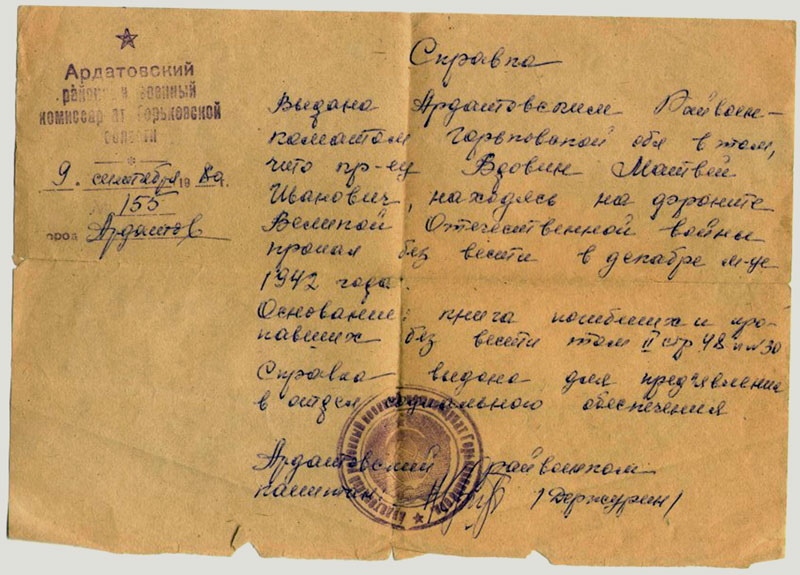 Ардатовский
районный военный
комиссариат Горьковской
области
9. сентября 1980г.
№ 155
город Ардатов
Справка
Выдана Ардатовским Райвоен-
коматом Горьковской обл в том,
что кр-ец Вдовин Матвей
Иванович, находясь на фронте
Великой Отечественной войны
пропал без вести в декабре м-це
1942 года.
Основание: книга погибших и про-
павших без вести том II стр 48 п №30
Справка выдана для предъявления
в отдел социального обеспечения
Ардатовский райвоенком
капитан /Держурин/